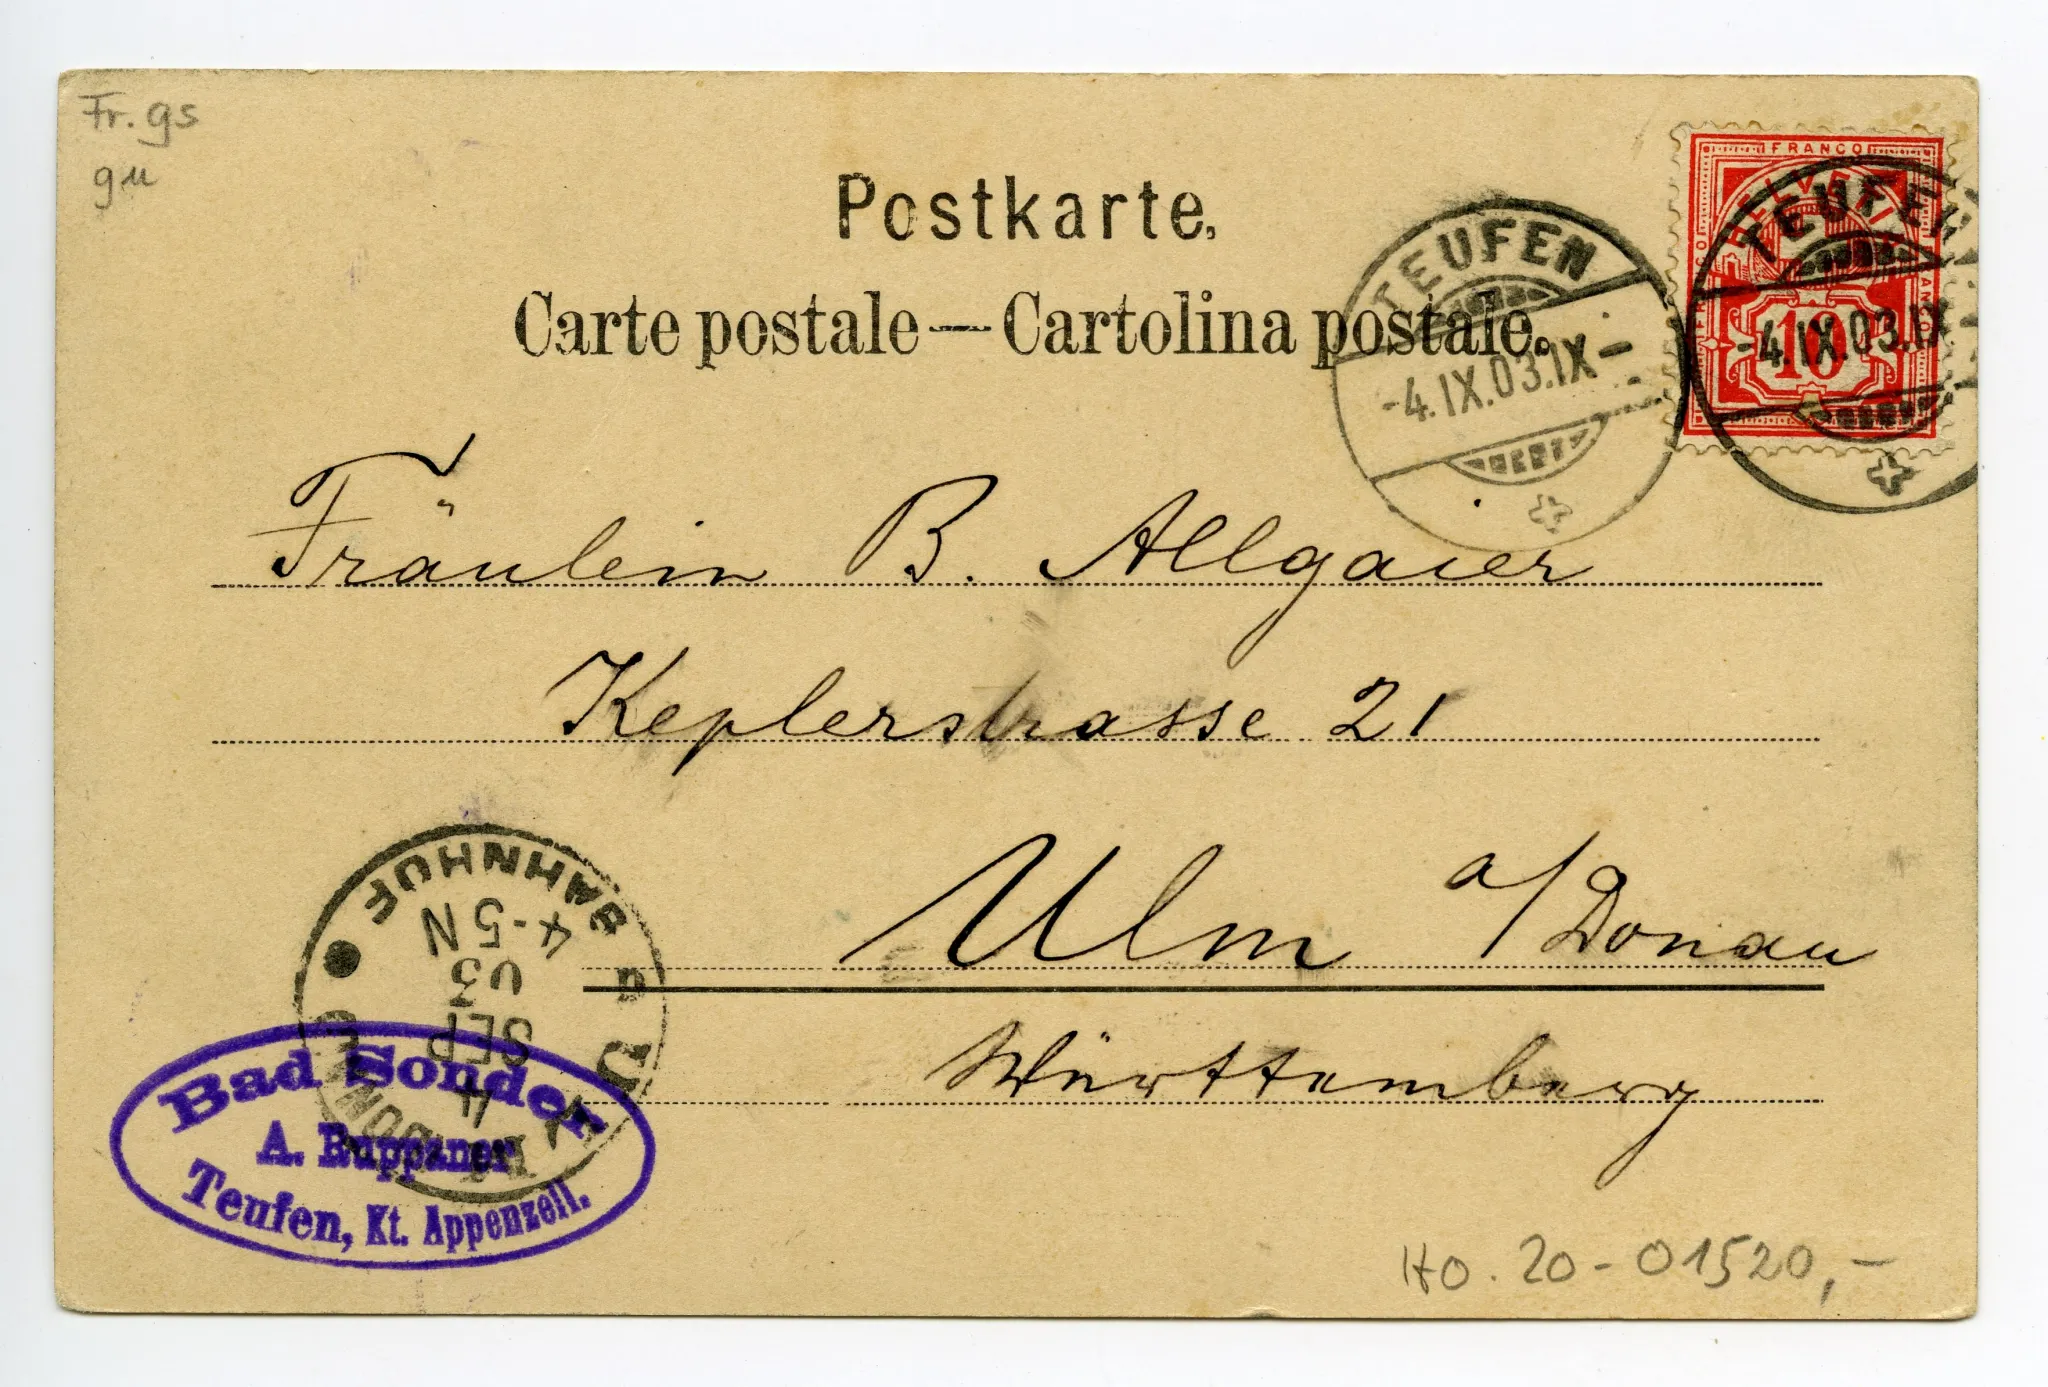 Fr. gs
gu
Postkarte.
Carte postale — Cartolina postale.
TEUFEN
-4.IX.03.IX-
FRANCO
HELVETIA
FRANCO
FRANCO
10
TEUFEN
-4.IX.03.IX
Fräulein B. Allgaier
Keplerstrasse 21
Ulm a/Donau
Württemberg
BAHNHOF
4-5N
03
SEP
Bad Sonder
A. Ruppaner
Teufen, Kt. Appenzell.
HO. 20-01520,-